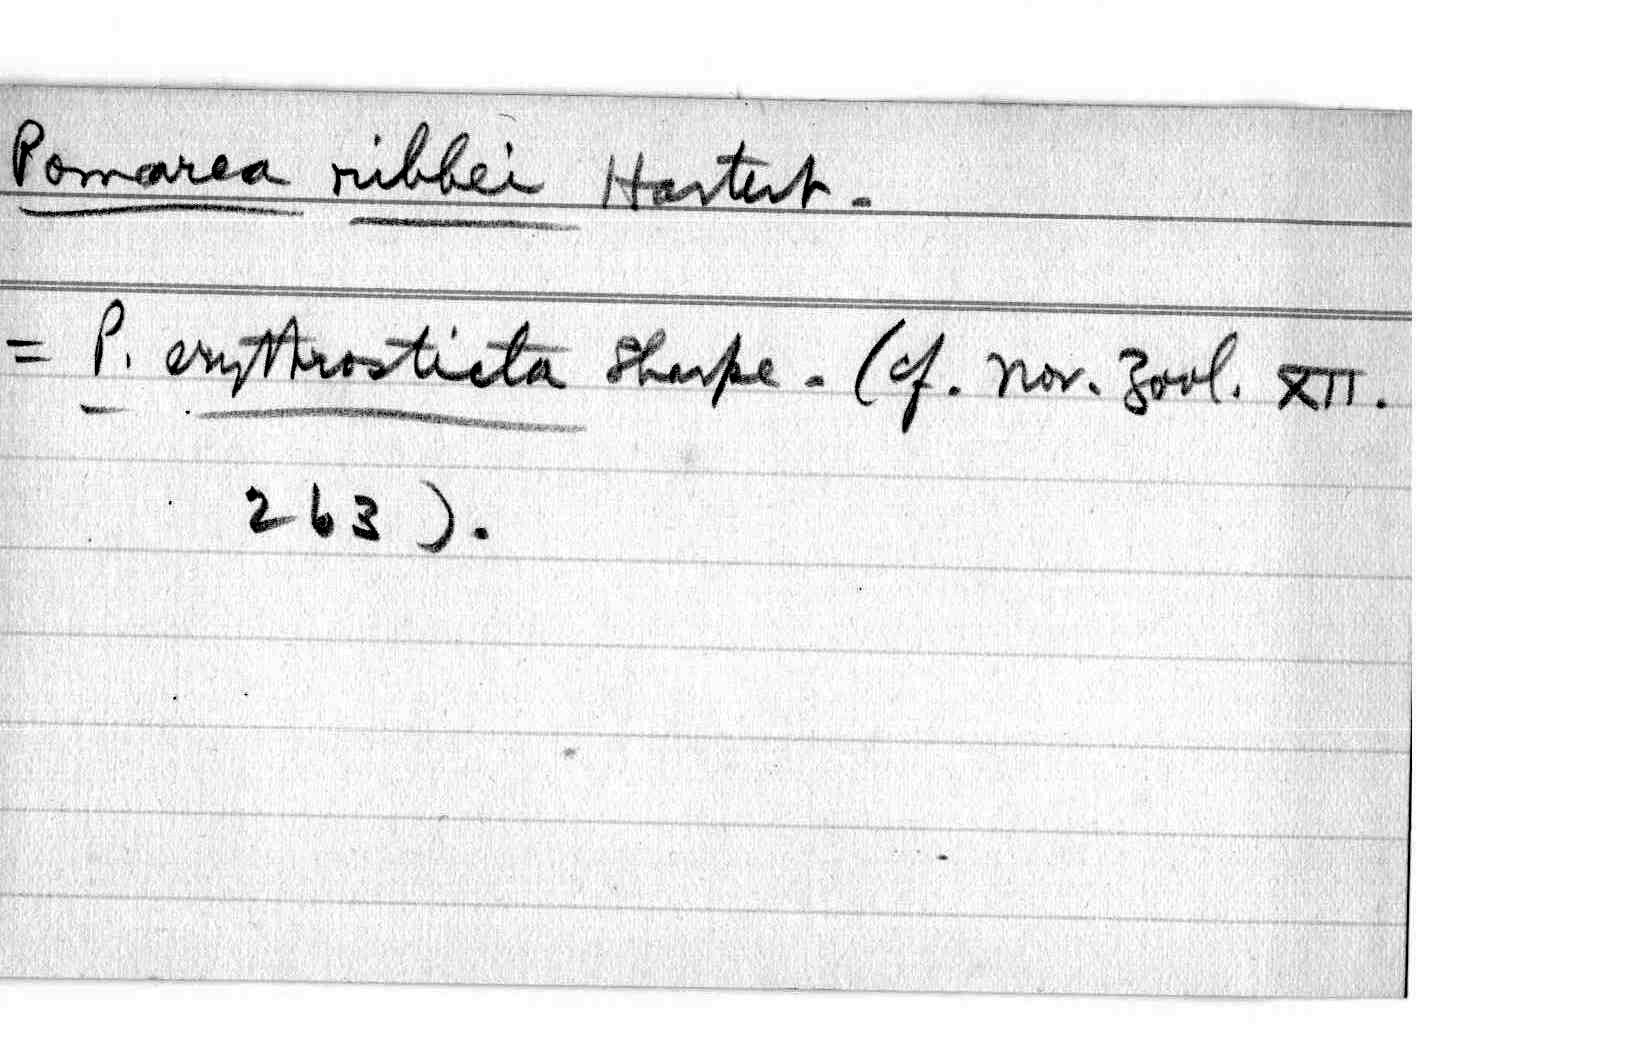 Pomarea ribbei Hartert.
= P. erythrosticta Sharpe. (cf. Nov. Zool. XII.
263).